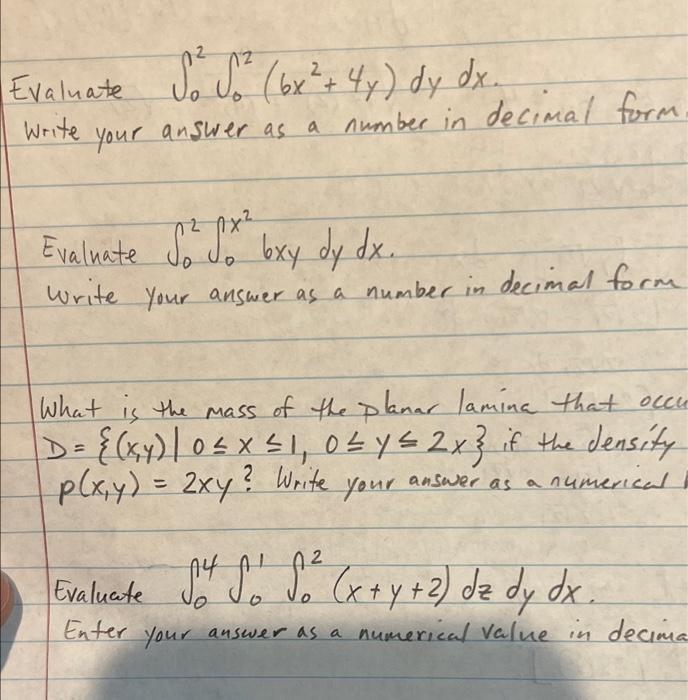 Evaluate ∫₀² ∫₀² (6x² + 4y) dy dx.
Write your answer as a number in decimal form.
Evaluate ∫₀² ∫₀^x² 6xy dy dx.
Write your answer as a number in decimal form
What is the mass of the planar lamina that occu
D = {(x,y) | 0 ≤ x ≤ 1, 0 ≤ y ≤ 2x} if the density
p(x,y) = 2xy? Write your answer as a numerical
Evaluate ∫₀⁴ ∫₀¹ ∫₀² (x + y + 2) dz dy dx.
Enter your answer as a numerical value in decima